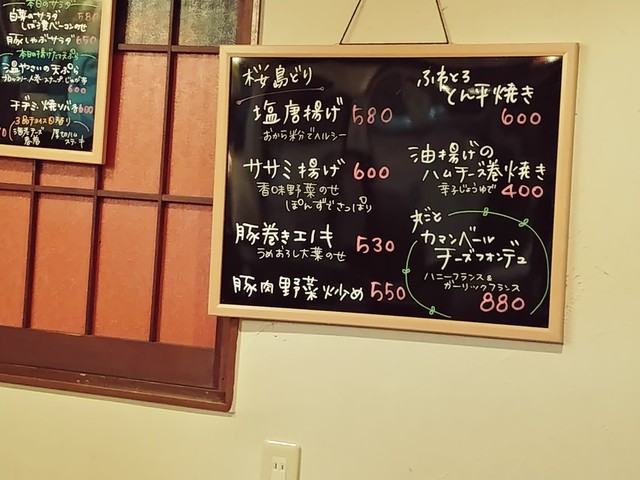 本日のサラダ
白菜のサラダ 580
豚しゃぶサラダ 650
温やさいの天ぷら
600
チヂミ 焼ソバ
桜島どり
塩唐揚げ 580
おから米分でヘルシー
ササミ揚げ 600
香味野菜のせ
ぽんずでさっぱり
豚巻きエノキ 530
うめおろし大葉のせ
豚肉野菜炒め 550
ふわとろ
とん平焼き
600
油揚げの
ハムチーズ巻焼き
辛子じょうゆで 400
丸ごと
カマンベール
チーズフォンデュ
ハニーフランス&
ガーリックフランス
880